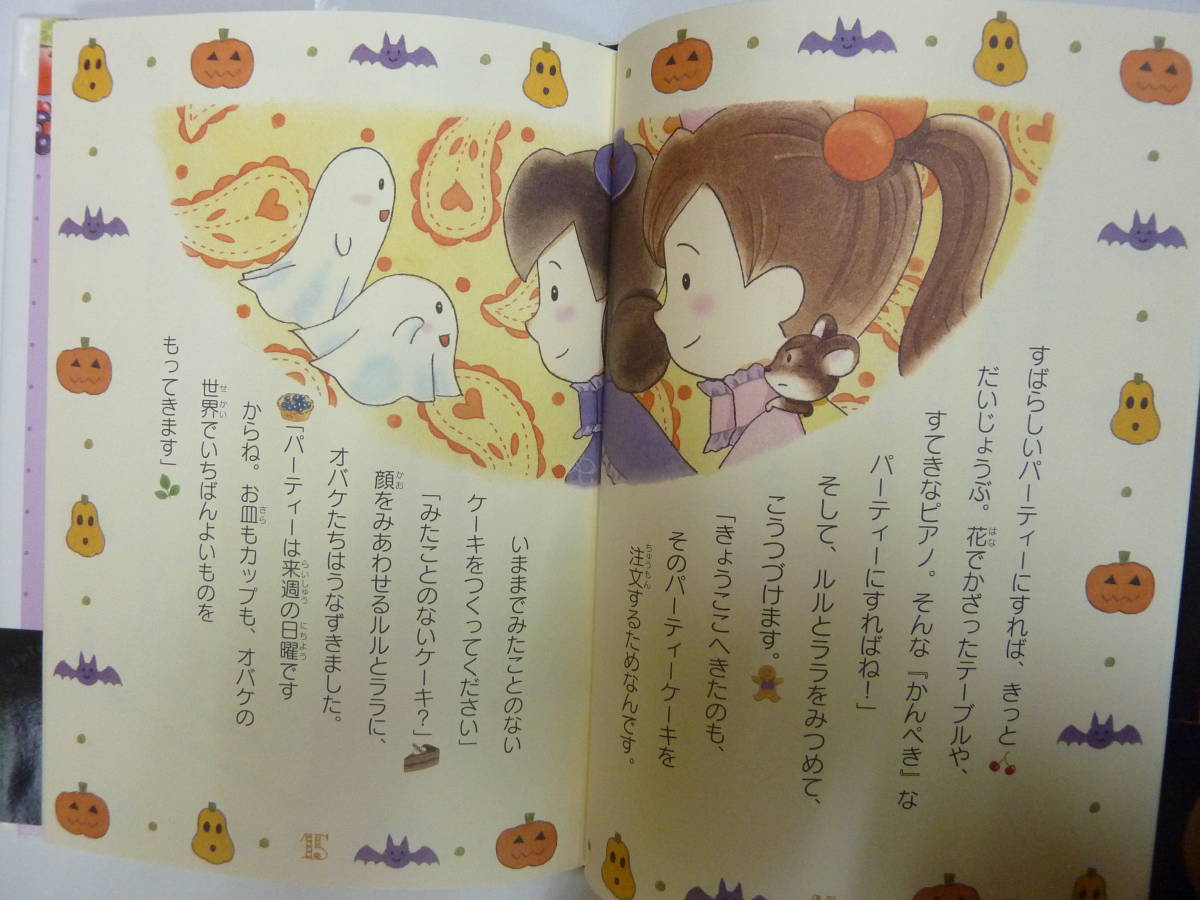 すばらしいパーティーにすれば、きっと
だいじょうぶ。花でかざったテーブルや、
はな
すてきなピアノ。そんな『かんぺき』な
パーティーにすればね!」
そして、ルルとララをみつめて、
こうつづけます。
「きょうここへきたのも、
そのパーティーケーキを
注文するためなんです。
ちゅうもん
いままでみたことのない
ケーキをつくってください」
「みたことのないケーキ?」
顔をみあわせるルルとララに、
かお
オバケたちはうなずきました。
「パーティーは来週の日曜です
らいしゅう
にちよう
からね。お皿もカップも、オバケの
さら
世界でいちばんよいものを
せかい
もってきます」
15